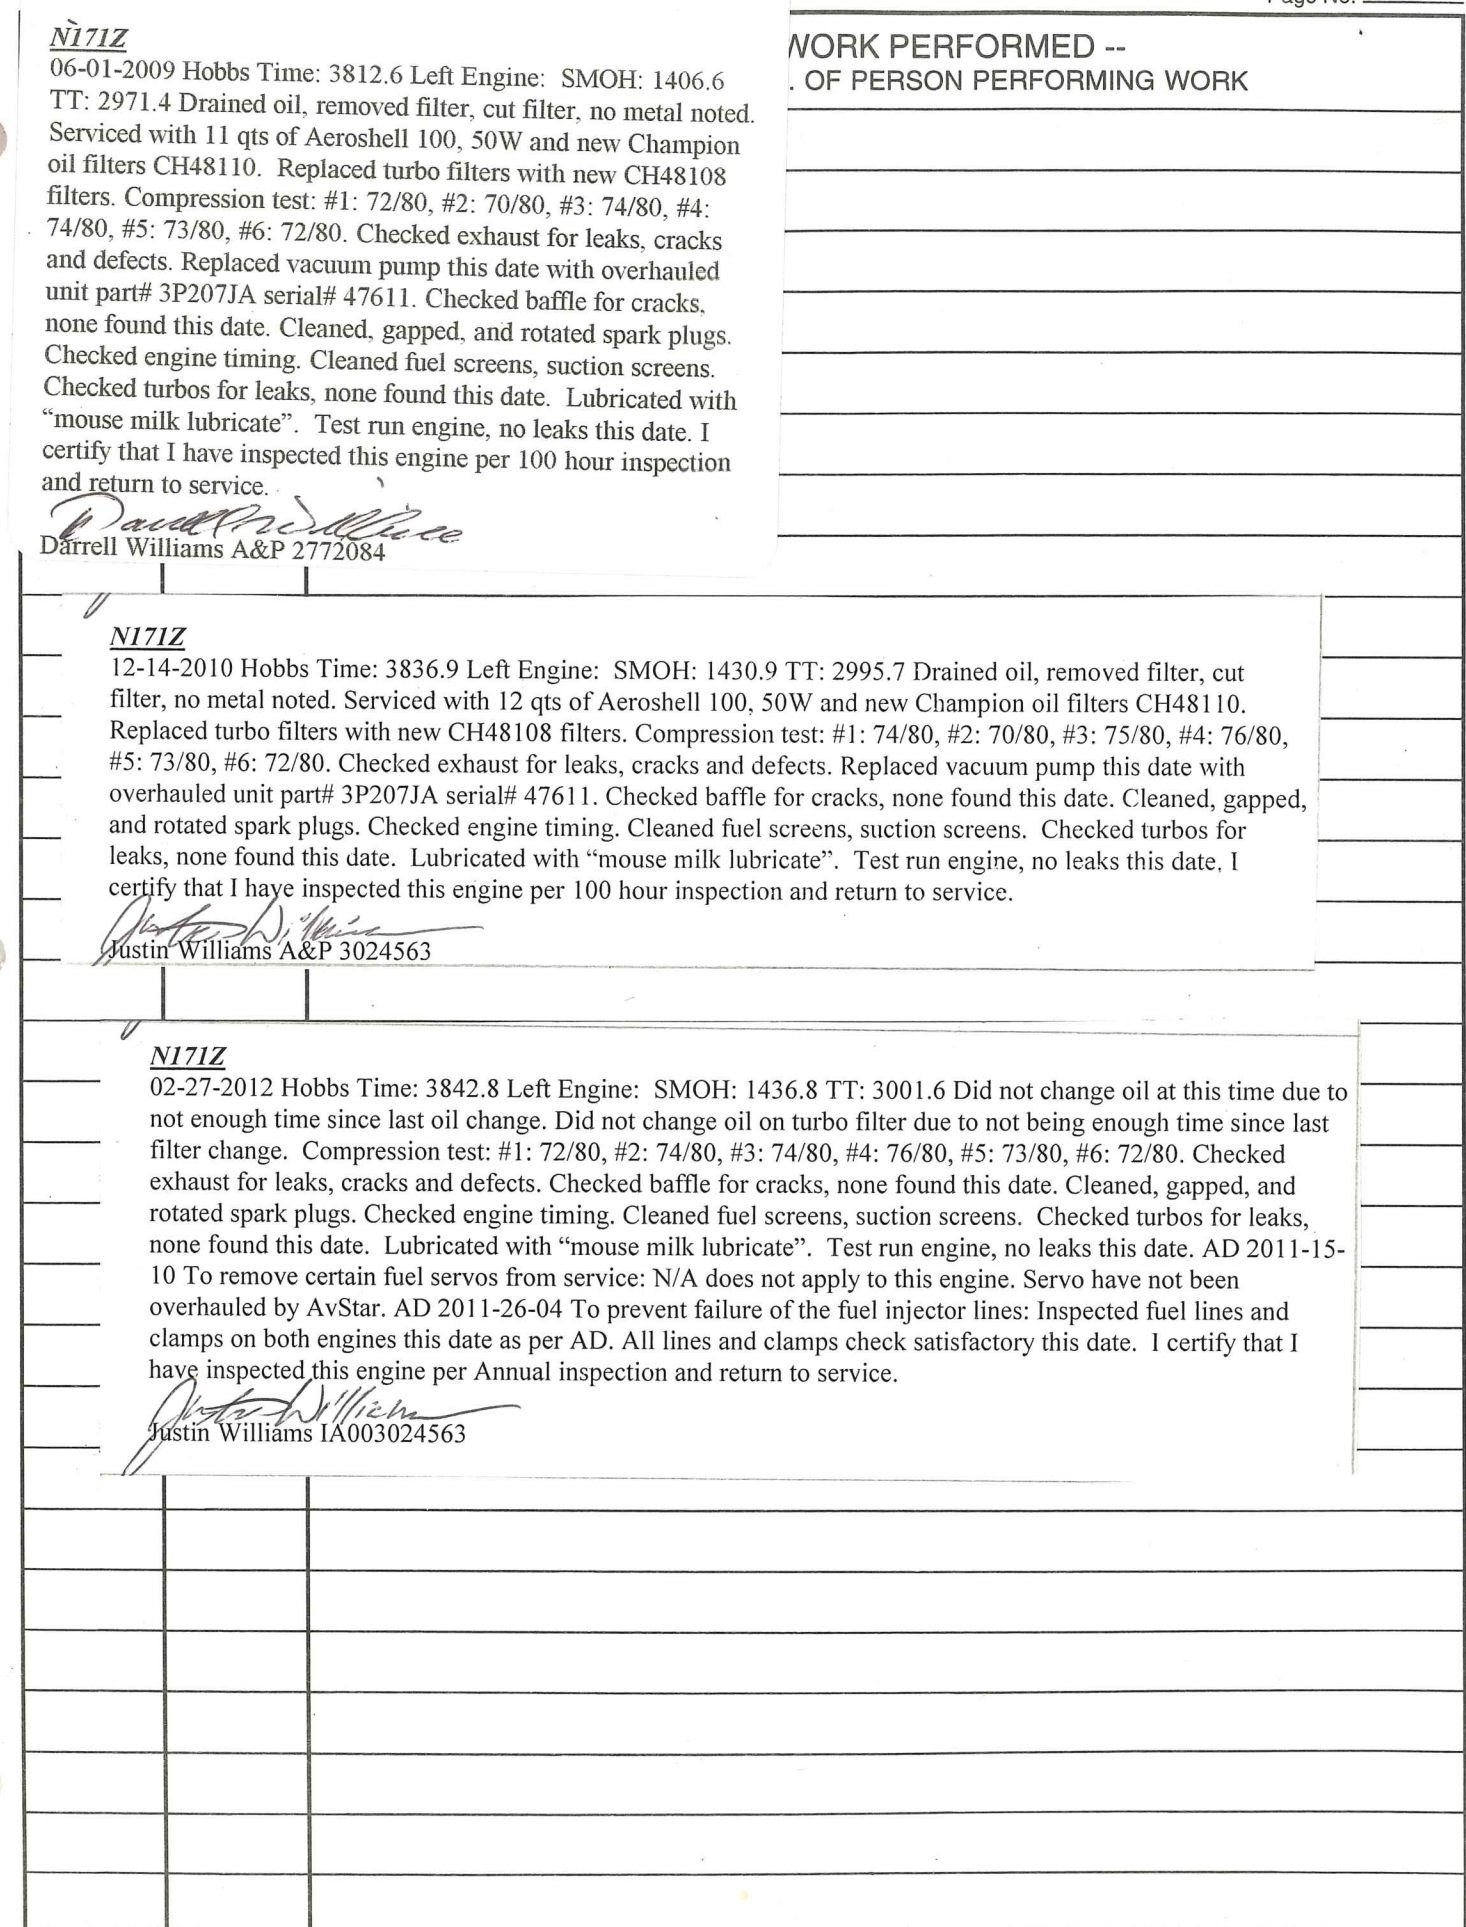 Page No.
WORK PERFORMED --
. OF PERSON PERFORMING WORK
N171Z
06-01-2009 Hobbs Time: 3812.6 Left Engine:  SMOH: 1406.6
TT: 2971.4 Drained oil, removed filter, cut filter, no metal noted.
Serviced with 11 qts of Aeroshell 100, 50W and new Champion
oil filters CH48110.  Replaced turbo filters with new CH48108
filters. Compression test: #1: 72/80, #2: 70/80, #3: 74/80, #4:
74/80, #5: 73/80, #6: 72/80. Checked exhaust for leaks, cracks
and defects. Replaced vacuum pump this date with overhauled
unit part# 3P207JA serial# 47611. Checked baffle for cracks,
none found this date. Cleaned, gapped, and rotated spark plugs.
Checked engine timing. Cleaned fuel screens, suction screens.
Checked turbos for leaks, none found this date.  Lubricated with
“mouse milk lubricate”.  Test run engine, no leaks this date. I
certify that I have inspected this engine per 100 hour inspection
and return to service.
Darrell Williams A&P 2772084
N171Z
12-14-2010 Hobbs Time: 3836.9 Left Engine:  SMOH: 1430.9 TT: 2995.7 Drained oil, removed filter, cut
filter, no metal noted. Serviced with 12 qts of Aeroshell 100, 50W and new Champion oil filters CH48110.
Replaced turbo filters with new CH48108 filters. Compression test: #1: 74/80, #2: 70/80, #3: 75/80, #4: 76/80,
#5: 73/80, #6: 72/80. Checked exhaust for leaks, cracks and defects. Replaced vacuum pump this date with
overhauled unit part# 3P207JA serial# 47611. Checked baffle for cracks, none found this date. Cleaned, gapped,
and rotated spark plugs. Checked engine timing. Cleaned fuel screens, suction screens.  Checked turbos for
leaks, none found this date.  Lubricated with “mouse milk lubricate”.  Test run engine, no leaks this date. I
certify that I have inspected this engine per 100 hour inspection and return to service.
Justin Williams A&P 3024563
N171Z
02-27-2012 Hobbs Time: 3842.8 Left Engine:  SMOH: 1436.8 TT: 3001.6 Did not change oil at this time due to
not enough time since last oil change. Did not change oil on turbo filter due to not being enough time since last
filter change.  Compression test: #1: 72/80, #2: 74/80, #3: 74/80, #4: 76/80, #5: 73/80, #6: 72/80. Checked
exhaust for leaks, cracks and defects. Checked baffle for cracks, none found this date. Cleaned, gapped, and
rotated spark plugs. Checked engine timing. Cleaned fuel screens, suction screens.  Checked turbos for leaks,
none found this date.  Lubricated with “mouse milk lubricate”.  Test run engine, no leaks this date. AD 2011-15-
10 To remove certain fuel servos from service: N/A does not apply to this engine. Servo have not been
overhauled by AvStar. AD 2011-26-04 To prevent failure of the fuel injector lines: Inspected fuel lines and
clamps on both engines this date as per AD. All lines and clamps check satisfactory this date.  I certify that I
have inspected this engine per Annual inspection and return to service.
Justin Williams IA003024563